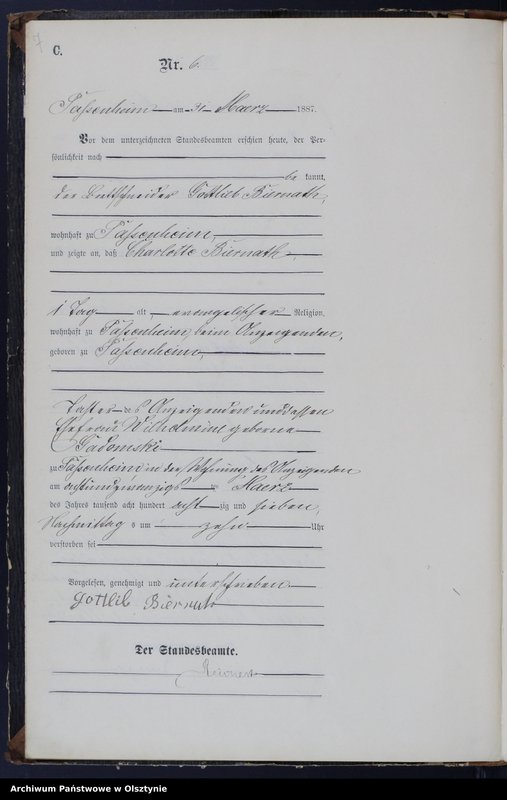 7
C.
Nr. 6.
Passenheim am 31 Maerz 1887.
Vor dem unterzeichneten Standesbeamten erschien heute, der Per-
sönlichkeit nach
be kannt,
der Gottlieb Biernath,
wohnhaft zu Passenheim,
und zeigte an, daß Charlotte Biernath,
1 Tag alt, evangelischer Religion,
wohnhaft zu Passenheim, beim Anzeigenden,
geboren zu Passenheim,
Tochter des Anzeigenden und dessen
Ehefrau Wilhelmine geborne
Sadomski
zu Passenheim in der Wohnung des Anzeigenden
am achtundzwanzigs ten Maerz
des Jahres tausend acht hundert acht zig und sieben,
Nachmittag s um zehn Uhr
verstorben sei
Vorgelesen, genehmigt und unterschrieben
Gottlib Biernath
Der Standesbeamte.
Archiwum Państwowe w Olsztynie